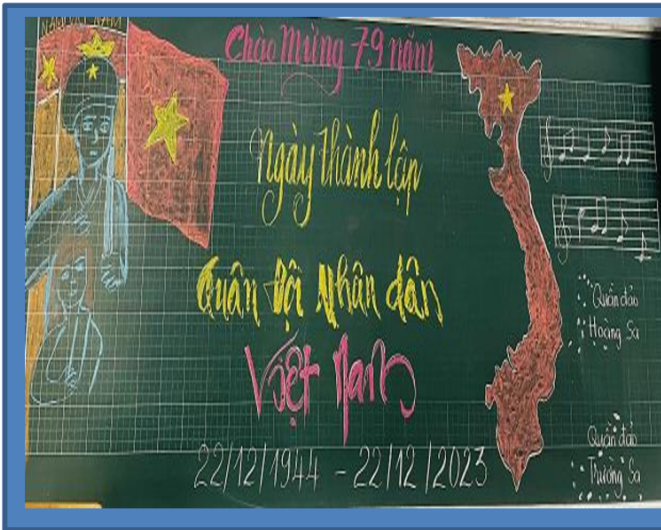 Chào mừng 79 năm
Ngày thành lập
Quân Đội Nhân dân
Việt Nam
22/12/1944 - 22/12/2023
Quần đảo
Hoàng Sa
Quần đảo
Trường Sa